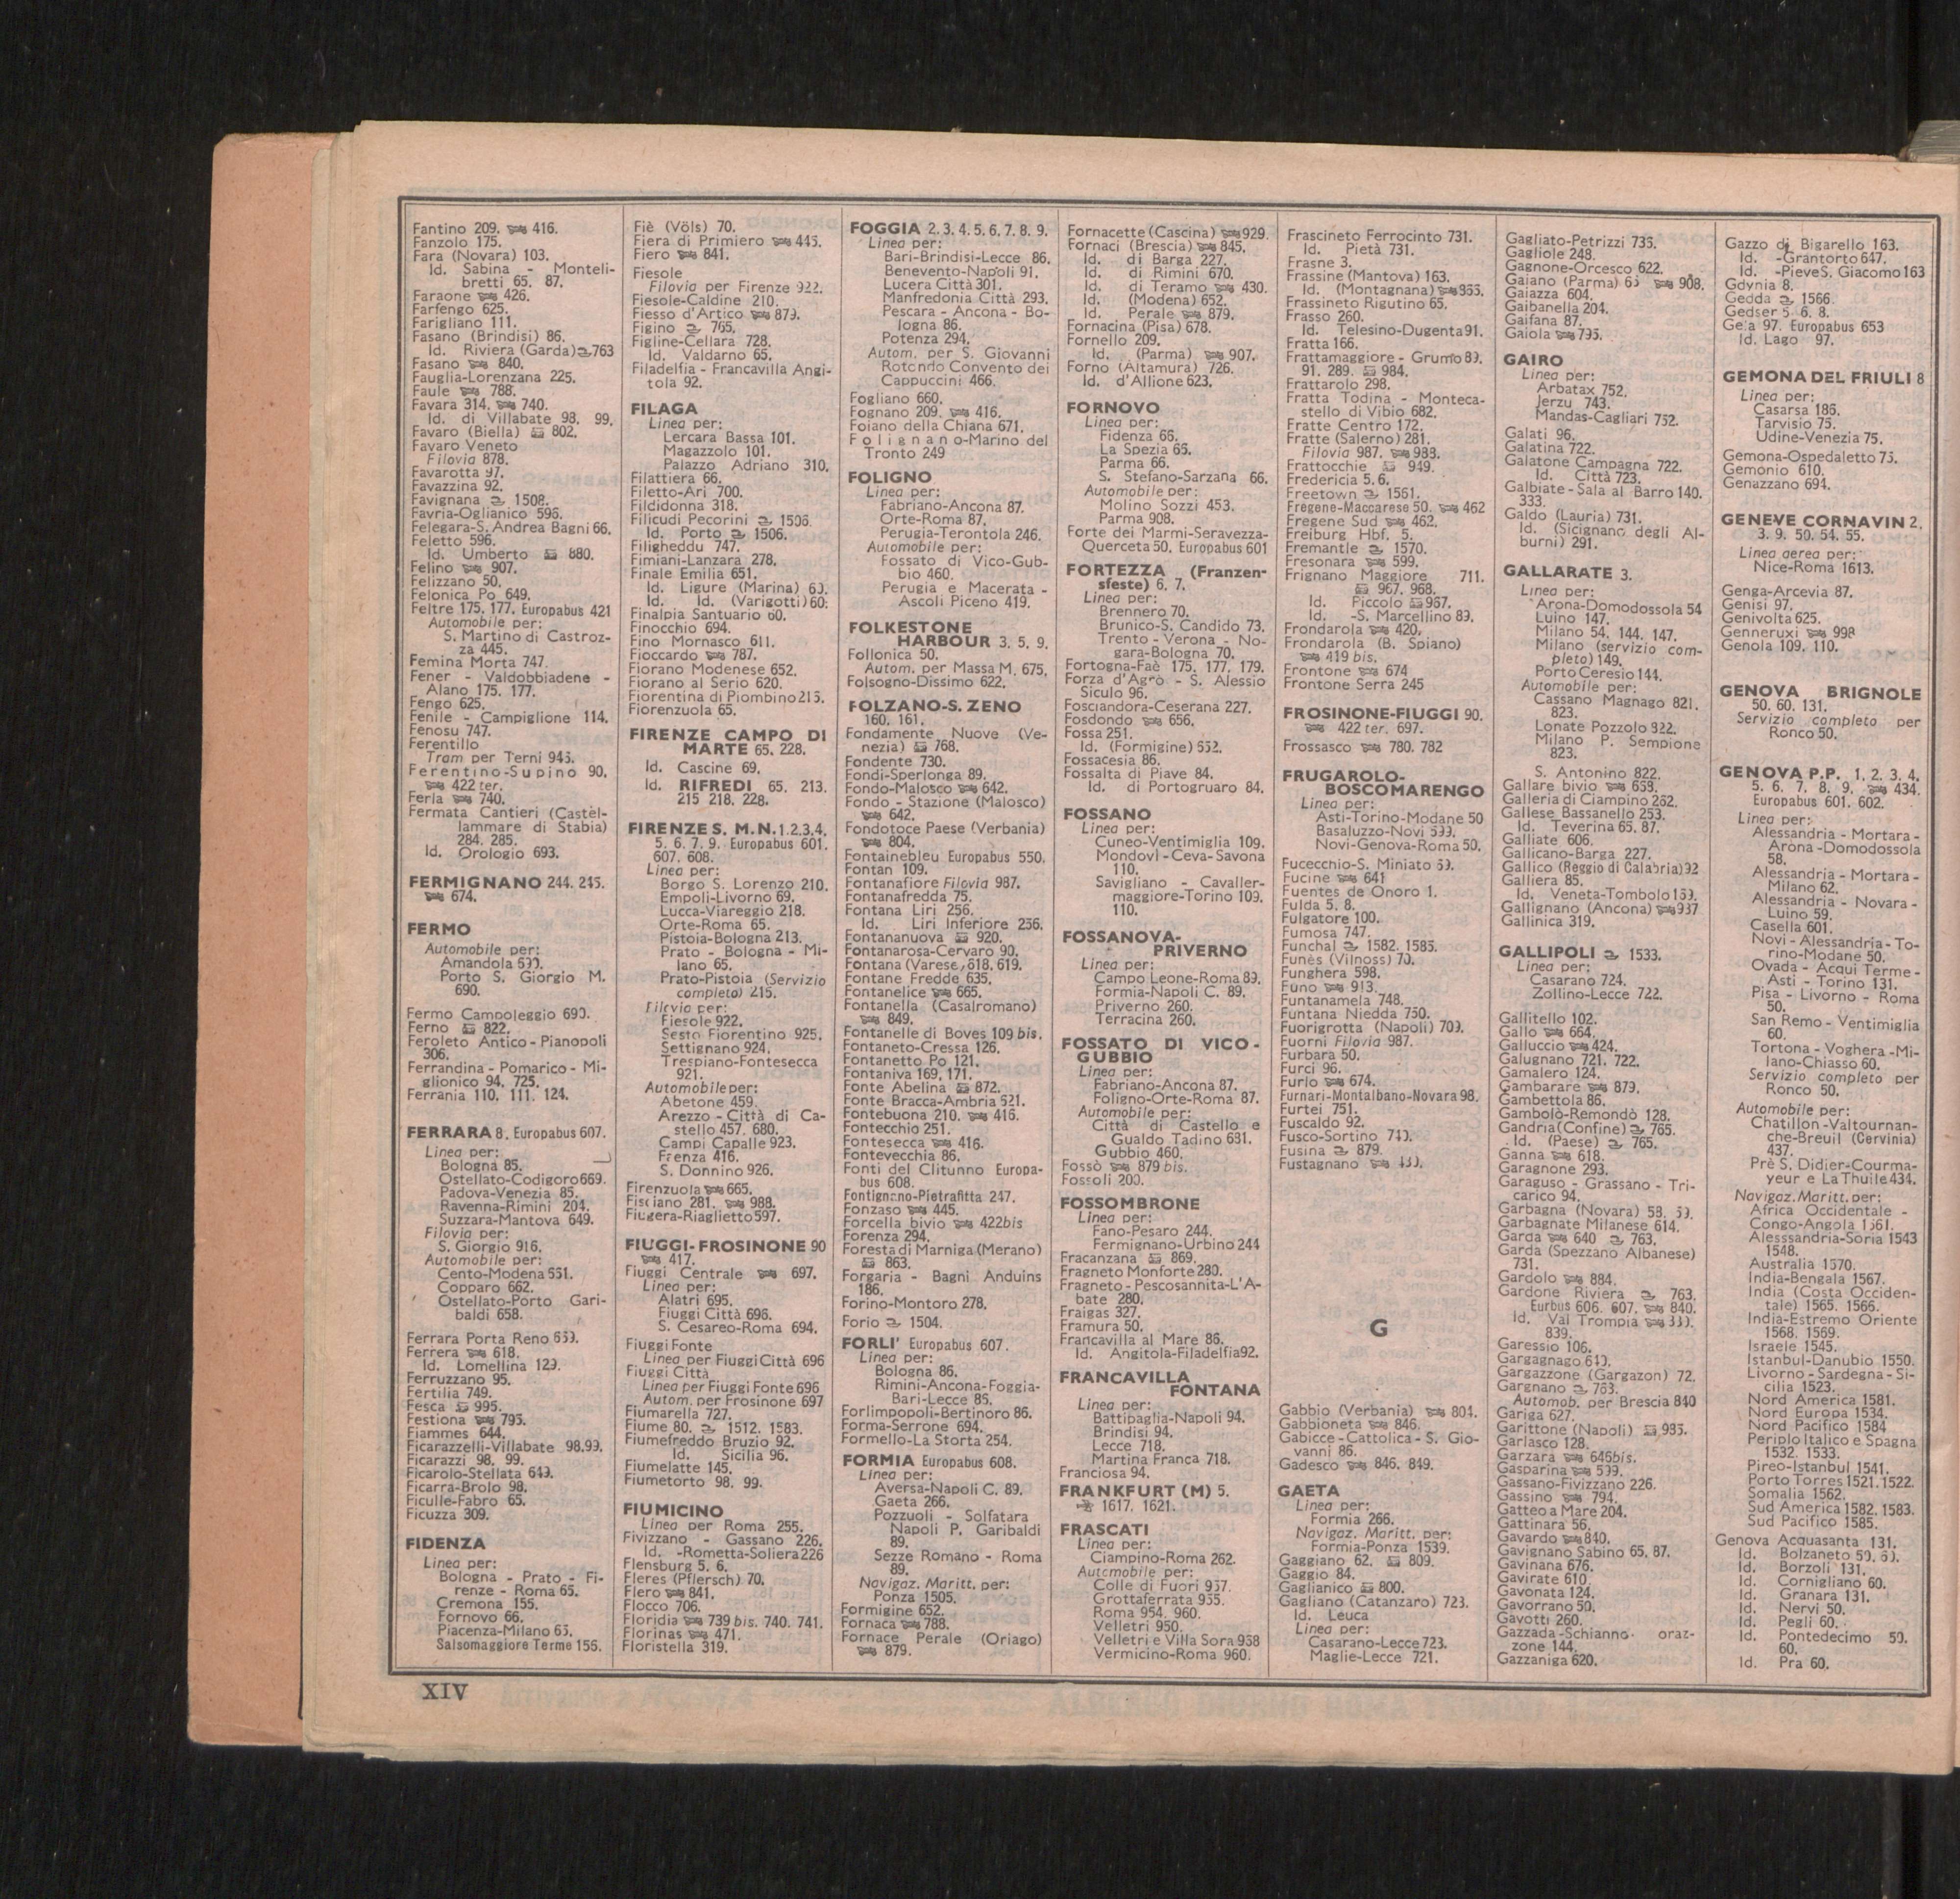 Fantino 209. 416.
Fanzolo 175.
Fara (Novara) 103.
Id. Sabina - Monteli-
bretti 65. 87.
Faraone 426.
Farfengo 625.
Farigliano 111.
Fasano (Brindisi) 86.
Id. Riviera (Garda) 763
Fasano 840.
Fauglia-Lorenzana 225.
Faule 788.
Favara 314. 740.
Id. di Villabate 98. 99.
Favaro (Biella) 802.
Favaro Veneto
Filovia 878.
Favarotta 97.
Favazzina 92.
Favignana 1508.
Favria-Oglianico 596.
Felegara-S. Andrea Bagni 66.
Feletto 596.
Id. Umberto 880.
Felino 907.
Felizzano 50.
Felonica Po 649.
Feltre 175. 177. Europabus 421
Automobile per:
S. Martino di Castroz-
za 445.
Femina Morta 747.
Fener - Valdobbiadene -
Alano 175. 177.
Fengo 625.
Fenile - Campiglione 114.
Fenosu 747.
Ferentillo
Tram per Terni 946.
Ferentino-Supino 90.
422 ter.
Ferla 740.
Fermata Cantieri (Castel-
lammare di Stabia)
284. 285.
Id. Orologio 693.
FERMIGNANO 244. 245.
674.
FERMO
Automobile per:
Amandola 690.
Porto S. Giorgio M.
690.
Fermo Campoleggio 690.
Ferno 822.
Feroleto Antico - Pianopoli
306.
Ferrandina - Pomarico - Mi-
glionico 94. 725.
Ferrania 110. 111. 124.
FERRARA 8. Europabus 607.
Linea per:
Bologna 85.
Ostellato-Codigoro 669.
Padova-Venezia 85.
Ravenna-Rimini 204.
Suzzara-Mantova 649.
Filovia per:
S. Giorgio 916.
Automobile per:
Cento-Modena 651.
Copparo 662.
Ostellato-Porto Gari-
baldi 658.
Ferrara Porta Reno 659.
Ferrera 618.
Id. Lomellina 129.
Ferruzzano 95.
Fertilia 749.
Fesca 995.
Festiona 795.
Fiammes 644.
Ficarazzelli-Villabate 98.99.
Ficarazzi 98. 99.
Ficarolo-Stellata 649.
Ficarra-Brolo 98.
Ficulle-Fabro 65.
Ficuzza 309.
FIDENZA
Linea per:
Bologna - Prato - Fi-
renze - Roma 65.
Cremona 155.
Fornovo 66.
Piacenza-Milano 65.
Salsomaggiore Terme 156.
Fiè (Völs) 70.
Fiera di Primiero 445.
Fiero 841.
Fiesole
Filovia per Firenze 922.
Fiesole-Caldine 210.
Fiesso d'Artico 879.
Figino 765.
Figline-Cellara 728.
Id. Valdarno 65.
Filadelfia - Francavilla Angi-
tola 92.
FILAGA
Linea per:
Lercara Bassa 101.
Magazzolo 101.
Palazzo Adriano 310.
Filattiera 66.
Filetto-Ari 700.
Fildidonna 318.
Filicudi Pecorini 1506.
Id. Porto 1506.
Filigheddu 747.
Fimiani-Lanzara 278.
Finale Emilia 651.
Id. Ligure (Marina) 60.
Id. Id. (Varigotti) 60.
Finalpia Santuario 60.
Finocchio 694.
Fino Mornasco 611.
Fioccardo 787.
Fiorano Modenese 652.
Fiorano al Serio 620.
Fiorentina di Piombino 215.
Fiorenzuola 65.
FIRENZE CAMPO DI
MARTE 65. 228.
Id. Cascine 69.
Id. RIFREDI 65. 213.
215 218. 228.
FIRENZE S. M.N. 1.2.3.4.
5. 6. 7. 9. Europabus 601.
607. 608.
Linea per:
Borgo S. Lorenzo 210.
Empoli-Livorno 69.
Lucca-Viareggio 218.
Orte-Roma 65.
Pistoia-Bologna 213.
Prato - Bologna - Mi-
lano 65.
Prato-Pistoia (Servizio
completo) 215.
Filovia per:
Fiesole 922.
Sesto Fiorentino 925.
Settignano 924.
Trespiano-Fontesecca
921.
Automobile per:
Abetone 459.
Arezzo - Città di Ca-
stello 457. 680.
Campi Capalle 923.
Frenza 416.
S. Donnino 926.
Firenzuola 665.
Fisciano 281. 988.
Fiugera-Riaglietto 597.
FIUGGI-FROSINONE 90
417.
Fiuggi Centrale 697.
Linea per:
Alatri 695.
Fiuggi Città 696.
S. Cesareo-Roma 694.
Fiuggi Fonte
Linea per Fiuggi Città 696
Fiuggi Città
Linea per Fiuggi Fonte 696
Autom. per Frosinone 697
Fiumarella 727.
Fiume 80. 1512. 1583.
Fiumefreddo Bruzio 92.
Id. Sicilia 96.
Fiumelatte 145.
Fiumetorto 98. 99.
FIUMICINO
Linea per Roma 255.
Fivizzano - Gassano 226.
Id. -Rometta-Soliera 226
Flensburg 5. 6.
Fleres (Pflersch) 70.
Flero 841.
Flocco 706.
Floridia 739 bis. 740. 741.
Florinas 471.
Floristella 319.
FOGGIA 2. 3. 4. 5. 6. 7. 8. 9.
Linea per:
Bari-Brindisi-Lecce 86.
Benevento-Napoli 91.
Lucera Città 301.
Manfredonia Città 293.
Pescara - Ancona - Bo-
logna 86.
Potenza 294.
Autom. per S. Giovanni
Rotondo Convento dei
Cappuccini 466.
Fogliano 660.
Fognano 209. 416.
Foiano della Chiana 671.
Folignano-Marino del
Tronto 249
FOLIGNO
Linea per:
Fabriano-Ancona 87.
Orte-Roma 87.
Perugia-Terontola 246.
Automobile per:
Fossato di Vico-Gub-
bio 460.
Perugia e Macerata -
Ascoli Piceno 419.
FOLKESTONE
HARBOUR 3. 5. 9.
Follonica 50.
Autom. per Massa M. 675.
Folsogno-Dissimo 622.
FOLZANO-S. ZENO
160. 161.
Fondamente Nuove (Ve-
nezia) 768.
Fondente 730.
Fondi-Sperlonga 89.
Fondo-Malosco 642.
Fondo - Stazione (Malosco)
642.
Fondotoce Paese (Verbania)
804.
Fontainebleu Europabus 550.
Fontan 109.
Fontanafiore Filovia 987.
Fontanafredda 75.
Fontana Liri 256.
Id. Liri Inferiore 256.
Fontananuova 920.
Fontanarosa-Cervaro 90.
Fontana (Varese) 618. 619.
Fontane Fredde 635.
Fontanelice 665.
Fontanella (Casalromano)
849.
Fontanelle di Boves 109 bis.
Fontaneto-Cressa 126.
Fontanetto Po 121.
Fontaniva 169. 171.
Fonte Abelina 872.
Fonte Bracca-Ambria 621.
Fontebuona 210. 416.
Fontecchio 251.
Fontesecca 416.
Fontevecchia 86.
Fonti del Clitunno Europa-
bus 608.
Fontignano-Pietrafitta 247.
Fonzaso 445.
Forcella bivio 422bis
Forenza 294.
Foresta di Marniga (Merano)
863.
Forgaria - Bagni Anduins
186.
Forino-Montoro 278.
Forio 1504.
FORLI' Europabus 607.
Linea per:
Bologna 86.
Rimini-Ancona-Foggia-
Bari-Lecce 86.
Forlimpopoli-Bertinoro 86.
Forma-Serrone 694.
Formello-La Storta 254.
FORMIA Europabus 608.
Linea per:
Aversa-Napoli C. 89.
Gaeta 266.
Pozzuoli - Solfatara
Napoli P. Garibaldi
89.
Sezze Romano - Roma
89.
Navigaz. Maritt. per:
Ponza 1505.
Formigine 652.
Fornaca 788.
Fornace Perale (Oriago)
879.
Fornacette (Cascina) 929.
Fornaci (Brescia) 845.
Id. di Barga 227.
Id. di Rimini 670.
Id. di Teramo 430.
Id. (Modena) 652.
Id. Perale 879.
Fornacina (Pisa) 678.
Fornello 209.
Id. (Parma) 907.
Forno (Altamura) 726.
Id. d'Allione 623.
FORNOVO
Linea per:
Fidenza 66.
La Spezia 65.
Parma 66.
S. Stefano-Sarzana 66.
Automobile per:
Molino Sozzi 453.
Parma 908.
Forte dei Marmi-Seravezza-
Querceta 50. Europabus 601
FORTEZZA (Franzen-
sfeste) 6. 7.
Linea per:
Brennero 70.
Brunico-S. Candido 73.
Trento - Verona - No-
gara-Bologna 70.
Fortogna-Faè 175. 177. 179.
Forza d'Agrò - S. Alessio
Siculo 96.
Fosciandora-Ceserana 227.
Fosdondo 656.
Fossa 251.
Id. (Formigine) 652.
Fossacesia 86.
Fossalta di Piave 84.
Id. di Portogruaro 84.
FOSSANO
Linea per:
Cuneo-Ventimiglia 109.
Mondovì - Ceva - Savona
110.
Savigliano - Cavaller-
maggiore-Torino 109.
110.
FOSSANOVA-
PRIVERNO
Linea per:
Campo Leone-Roma 89.
Formia-Napoli C. 89.
Priverno 260.
Terracina 260.
FOSSATO DI VICO-
GUBBIO
Linea per:
Fabriano-Ancona 87.
Foligno-Orte-Roma 87.
Automobile per:
Città di Castello e
Gualdo Tadino 681.
Gubbio 460.
Fossò 879 bis.
Fossoli 200.
FOSSOMBRONE
Linea per:
Fano-Pesaro 244.
Fermignano-Urbino 244
Fracanzana 869.
Fragneto Monforte 280.
Fragneto - Pescosannita-L'A-
bate 280.
Fraigas 327.
Framura 50.
Francavilla al Mare 86.
Id. Angitola-Filadelfia 92.
FRANCAVILLA
FONTANA
Linea per:
Battipaglia-Napoli 94.
Brindisi 94.
Lecce 718.
Martina Franca 718.
Franciosa 94.
FRANKFURT (M) 5.
1617. 1621.
FRASCATI
Linea per:
Ciampino-Roma 262.
Automobile per:
Colle di Fuori 957.
Grottaferrata 955.
Roma 954. 960.
Velletri 950.
Velletri e Villa Sora 958
Vermicino-Roma 960.
Frascineto Ferrocinto 731.
Id. Pietà 731.
Frasne 3.
Frassine (Mantova) 163.
Id. (Montagnana)
Frassineto Rigutino 65.
Frasso 260.
Id. Telesino-Dugenta 91.
Fratta 166.
Frattamaggiore - Grumo 89.
91. 289. 984.
Frattarolo 298.
Fratta Todina - Monteca-
stello di Vibio 682.
Fratte Centro 172.
Fratte (Salerno) 281.
Filovia 987. 988.
Frattocchie 949.
Fredericia 5. 6.
Freetown 1561.
Fregene-Maccarese 50. 462
Fregene Sud 462.
Freiburg Hbf. 5.
Fremantle 1570.
Fresonara 599.
Frignano Maggiore 711.
967. 968.
Id. Piccolo 967.
Id. -S. Marcellino 89.
Frondarola 420.
Frondarola (B. Spiano)
419 bis.
Frontone 674
Frontone Serra 245
FROSINONE-FIUGGI 90.
422 ter. 697.
Frossasco 780. 782
FRUGAROLO-
BOSCOMARENGO
Linea per:
Asti-Torino-Modane 50
Basaluzzo-Novi 599.
Novi-Genova-Roma 50.
Fucecchio-S. Miniato 69.
Fucine 641
Fuentes de Onoro 1.
Fulda 5. 8.
Fulgatore 100.
Fumosa 747.
Funchal 1582. 1585.
Funès (Vilnoss) 70.
Funghera 598.
Funo 913.
Funtanamela 748.
Funtana Niedda 750.
Fuorigrotta (Napoli) 709.
Fuorni Filovia 987.
Furbara 50.
Furci 96.
Furlo 674.
Furnari-Montalbano-Novara 98.
Furtei 751.
Fuscaldo 92.
Fusco-Sortino 740.
Fusina 879.
Fustagnano
G
Gabbio (Verbania) 804.
Gabbioneta 846.
Gabicce-Cattolica - S. Gio-
vanni 86.
Gadesco 846. 849.
GAETA
Linea per:
Formia 266.
Navigaz. Maritt. per:
Formia-Ponza 1539.
Gaggiano 62. 809.
Gaggio 84.
Gaglianico 800.
Gagliano (Catanzaro) 723.
Id. Leuca
Linea per:
Casarano-Lecce 723.
Maglie-Lecce 721.
Gagliato-Petrizzi 735.
Gagliole 248.
Gagnone-Orcesco 622.
Gaiano (Parma) 65 908.
Gaiazza 604.
Gaibanella 204.
Gaifana 87.
Gaiola 795.
GAIRO
Linea per:
Arbatax 752.
Jerzu 743.
Mandas-Cagliari 752.
Galati 96.
Galatina 722.
Galatone Campagna 722.
Id. Città 723.
Galbiate - Sala al Barro 140.
333.
Galdo (Lauria) 731.
Id. (Sicignano degli Al-
burni) 291.
GALLARATE 3.
Linea per:
Arona-Domodossola 54
Luino 147.
Milano 54. 144. 147.
Milano (servizio com-
pleto) 149.
Porto Ceresio 144.
Automobile per:
Cassano Magnago 821.
823.
Lonate Pozzolo 822.
Milano P. Sempione
823.
S. Antonino 822.
Gallare bivio 659.
Galleria di Ciampino 262.
Gallese Bassanello 253.
Id. Teverina 65. 87.
Galliate 606.
Gallicano-Barga 227.
Gallico (Reggio di Calabria) 92
Galliera 85.
Id. Veneta-Tombolo 169.
Gallignano (Ancona) 937
Gallinica 319.
GALLIPOLI 1533.
Linea per:
Casarano 724.
Zollino-Lecce 722.
Gallitello 102.
Gallo 664.
Galluccio 424.
Galugnano 721. 722.
Gamalero 124.
Gambarare 879.
Gambettola 86.
Gambolò-Remondò 128.
Gandria (Confine) 765.
Id. (Paese) 765.
Ganna 618.
Garagnone 293.
Garaguso - Grassano - Tri-
carico 94.
Garbagna (Novara) 58. 59.
Garbagnate Milanese 614.
Garda 640 763.
Garda (Spezzano Albanese)
731.
Gardolo 884.
Gardone Riviera 763.
Eurbus 606. 607. 840.
Id. Val Trompia
839.
Garessio 106.
Gargagnago 640.
Gargazzone (Gargazon) 72.
Gargnano 763.
Automob. per Brescia 840
Gariga 627.
Garittone (Napoli) 985.
Garlasco 128.
Garzara 646bis.
Gasparina 599.
Gassano-Fivizzano 226.
Gassino 794.
Gatteo a Mare 204.
Gattinara 56.
Gavardo 840.
Gavignano Sabino 65. 87.
Gavinana 676.
Gavirate 610.
Gavonata 124.
Gavorrano 50.
Gavotti 260.
Gazzada-Schianno- oraz-
zone 144.
Gazzaniga 620.
Gazzo di Bigarello 163.
Id. -Grantorto 647.
Id. -Pieve S. Giacomo 163
Gdynia 8.
Gedda 1566.
Gedser 5. 6. 8.
Gela 97. Europabus 653
Id. Lago 97.
GEMONA DEL FRIULI 8
Linea per:
Casarsa 186.
Tarvisio 75.
Udine-Venezia 75.
Gemona-Ospedaletto 75.
Gemonio 610.
Genazzano 694.
GENEVE CORNAVIN 2.
3. 9. 50. 54. 55.
Linea aerea per:
Nice-Roma 1613.
Genga-Arcevia 87.
Genisi 97.
Genivolta 625.
Genneruxi 998
Genola 109. 110.
GENOVA BRIGNOLE
50. 60. 131.
Servizio completo per
Ronco 50.
GENOVA P.P. 1. 2. 3. 4.
5. 6. 7. 8. 9. 434.
Europabus 601. 602.
Linea per:
Alessandria - Mortara -
Arona - Domodossola
58.
Alessandria - Mortara -
Milano 62.
Alessandria - Novara -
Luino 59.
Casella 601.
Novi - Alessandria - To-
rino-Modane 50.
Ovada - Acqui Terme -
Asti - Torino 131.
Pisa - Livorno - Roma
50.
San Remo - Ventimiglia
60.
Tortona - Voghera - Mi-
lano-Chiasso 60.
Servizio completo per
Ronco 50.
Automobile per:
Chatillon-Valtournan-
che-Breuil (Cervinia)
437.
Prè S. Didier-Courma-
yeur e La Thuile 434.
Navigaz. Maritt. per:
Africa Occidentale -
Congo-Angola 1561.
Alesssandria-Soria 1543
1548.
Australia 1570.
India-Bengala 1567.
India (Costa Occiden-
tale) 1565. 1566.
India-Estremo Oriente
1568. 1569.
Israele 1545.
Istanbul-Danubio 1550.
Livorno - Sardegna - Si-
cilia 1523.
Nord America 1581.
Nord Europa 1534.
Nord Pacifico 1584
Periplo Italico e Spagna
1532. 1533.
Pireo-Istanbul 1541.
Porto Torres 1521. 1522.
Somalia 1562.
Sud America 1582. 1583.
Sud Pacifico 1585.
Genova Acquasanta 131.
Id. Bolzaneto 50. 60.
Id. Borzoli 131.
Id. Cornigliano 60.
Id. Granara 131.
Id. Nervi 50.
Id. Pegli 60.
Id. Pontedecimo 50.
60.
Id. Pra 60.
XIV